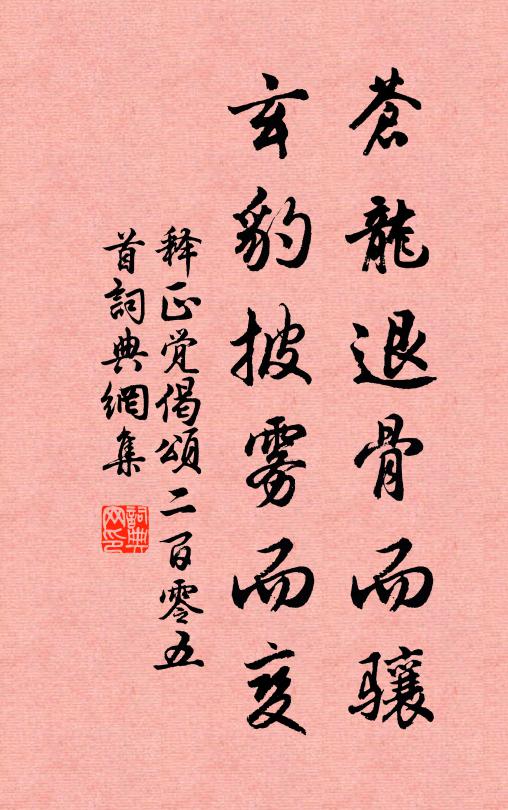 蒼龍退骨而驤
玄豹披雾而变
释正觉偈頌二百零五
首詞典網集
詞典
网印